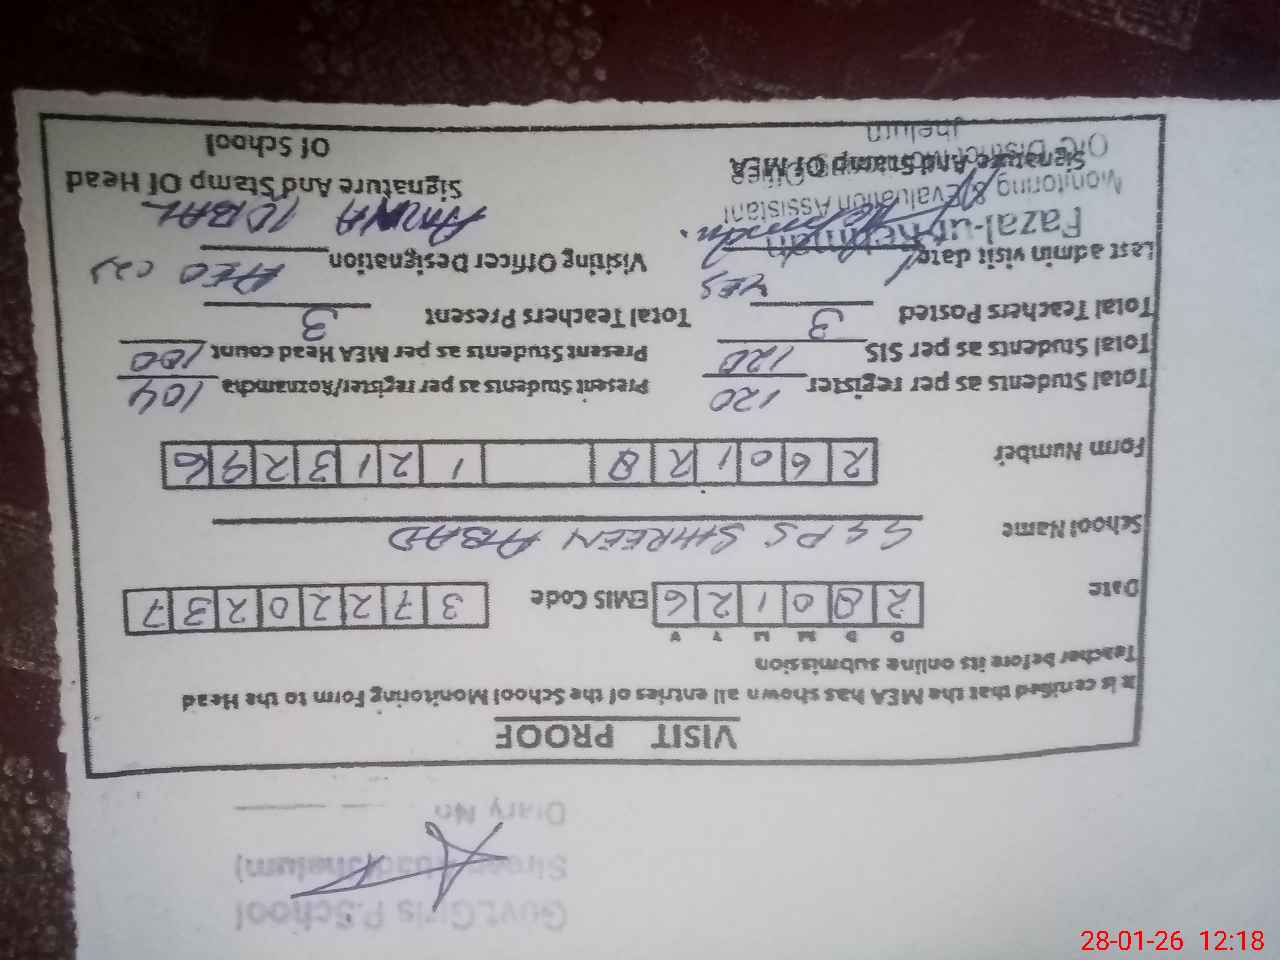 VISIT PROOF
It is certified that the MEA has shown all entries of the School Monitoring Form to the Head
Teacher before its online submission
D D M M Y Y
Date 2 8 0 1 2 6 EMIS Code 3 7 2 2 0 2 3 7
School Name GGPS SHREEN ABAD
Form Number 2 6 0 1 2 8 1 2 1 3 2 9 6
Total Students as per register 120 Present Students as per register/Roznamcha 104
Total Students as per SIS 120 Present Students as per MEA Head count 100
Total Teachers Posted 3 Total Teachers Present 3
Last admin visit date YES Visiting Officer Designation AEO
Fazal-ur-Rehman AMNA IQBAL
Monitoring & Evaluation Assistant
Signature And Stamp Of MEA Signature And Stamp Of Head
Of School
Jhelum
Govt.Girls P.School
(Jhelum)
Diary No
28-01-26 12:18